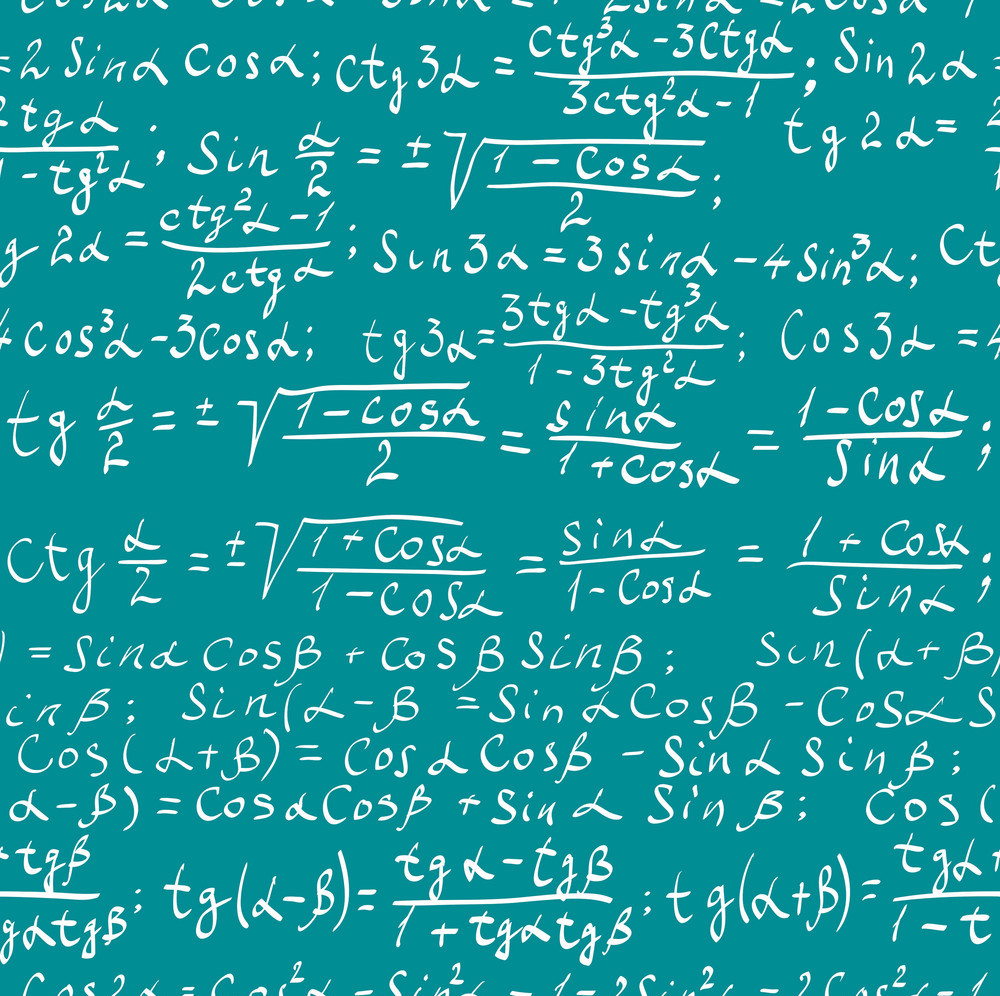 = 2 Sinα Cosα; ctg 3α = (ctg³α - 3Ctgα)/(3ctg²α - 1); Sin 2α =
2 tg α/(1 - tg²α); Sin α/2 = ± √((1 - Cosα)/2); tg 2α =
g 2α = (ctg²α - 1)/(2ctg α); Sin 3α = 3 sinα - 4 Sin³α; Ct
4 cos³α - 3Cosα; tg 3α = (3tgα - tg³α)/(1 - 3tg²α); Cos 3α = 4
tg α/2 = ± √((1 - cosα)/2) = sinα/(1 + cosα) = (1 - Cosα)/Sinα;
Ctg α/2 = ± √((1 + Cosα)/(1 - Cosα)) = sinα/(1 - Cosα) = (1 + Cosα)/Sinα;
) = Sinα Cosβ + Cos β Sinβ; Sin (α + β)
inβ; Sin(α - β = Sin α Cosβ - Cosα S
Cos(α + β) = Cos α Cosβ - Sinα Sinβ;
α - β) = Cosα Cosβ + Sin α Sin β; Cos (
tgβ/gαtgβ; tg(α - β) = (tg α - tgβ)/(1 + tgαtgβ); tg(α + β) = tgα +/1 - t
Cos2α = Cos²α - Sin²α = 1 - 2Sin²α = 2Cos²α - 1